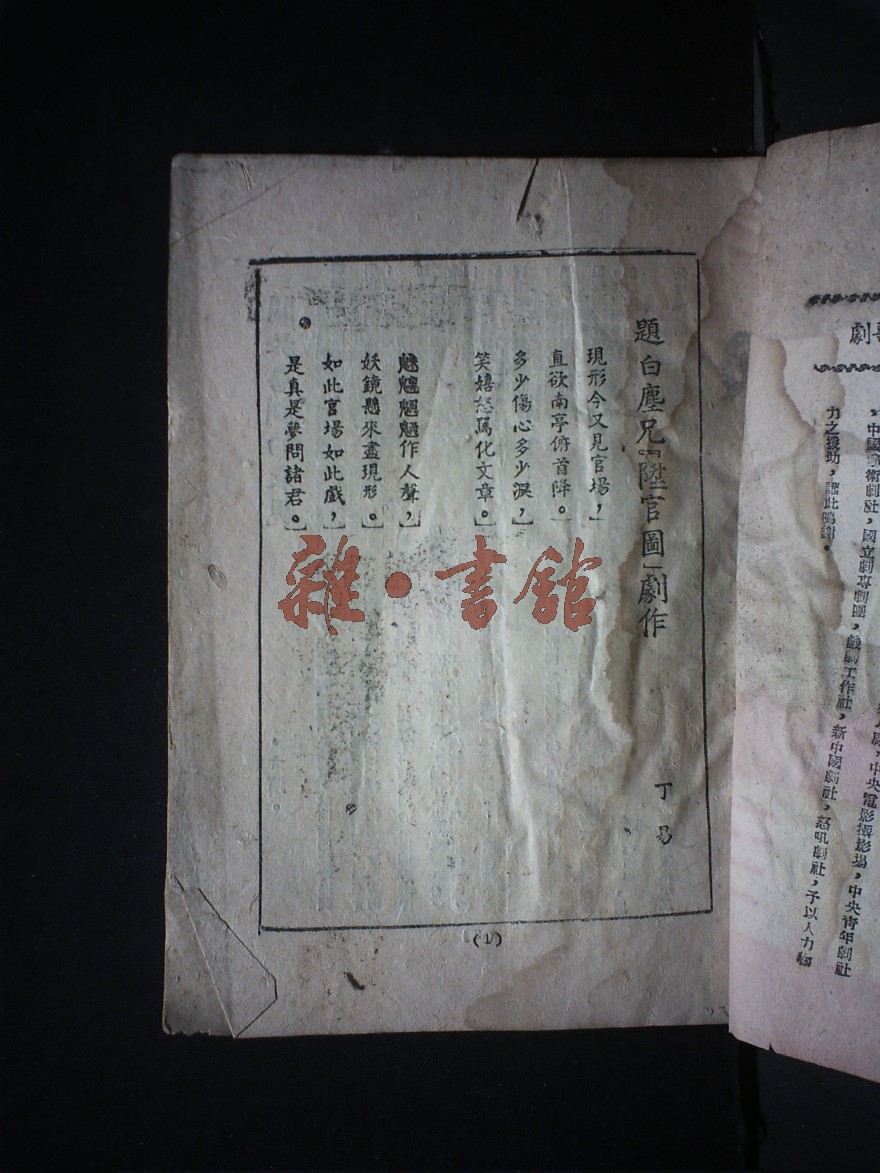 題白塵兄「陞官圖」劇作
丁易
現形今又見官場，
直欲南亭俯首降。
多少傷心多少淚，
笑嬉怒罵化文章。
魑魅魍魎作人聲，
妖鏡懸來盡現形。
如此官場如此戲，
是真是夢問諸君。
(1)
雜·書館
劇
，中國藝術劇社，國立劇專劇團，戲劇工作社，新中國劇社，怒吼劇社，予以人力物
力之援助，謹此鳴謝。
中央電影攝影場，中央青年劇社